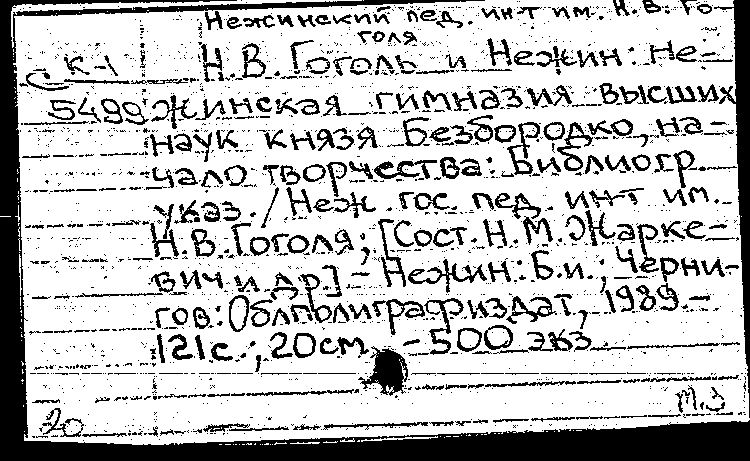 Нежинский пед. ин-т им. Н.В. Го-
голя
К-1
Н.В. Гоголь и Нежин: Не-
5499
жинская гимназия высших
наук князя Безбородко, на-
чало творчества: Библиогр.
указ. / Неж. гос. пед. ин-т им.
Н.В. Гоголя; [Сост. Н.М. Жарке-
вич и др.] – Нежин: Б.и.; Черни-
гов: Облполиграфиздат, 1989. –
121с.; 20см. – 500 экз.
М.З
20